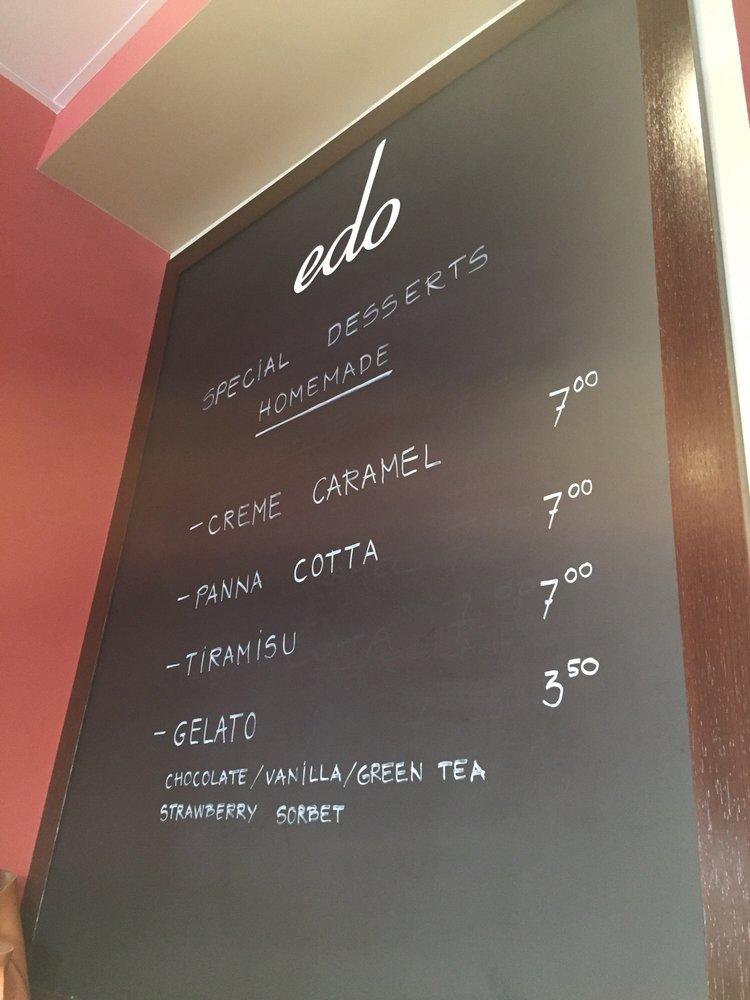 edo
SPECIAL DESSERTS
HOMEMADE
-CREME CARAMEL 7⁰⁰
-PANNA COTTA 7⁰⁰
-TIRAMISU 7⁰⁰
-GELATO 3⁵⁰
CHOCOLATE/VANILLA/GREEN TEA
STRAWBERRY SORBET